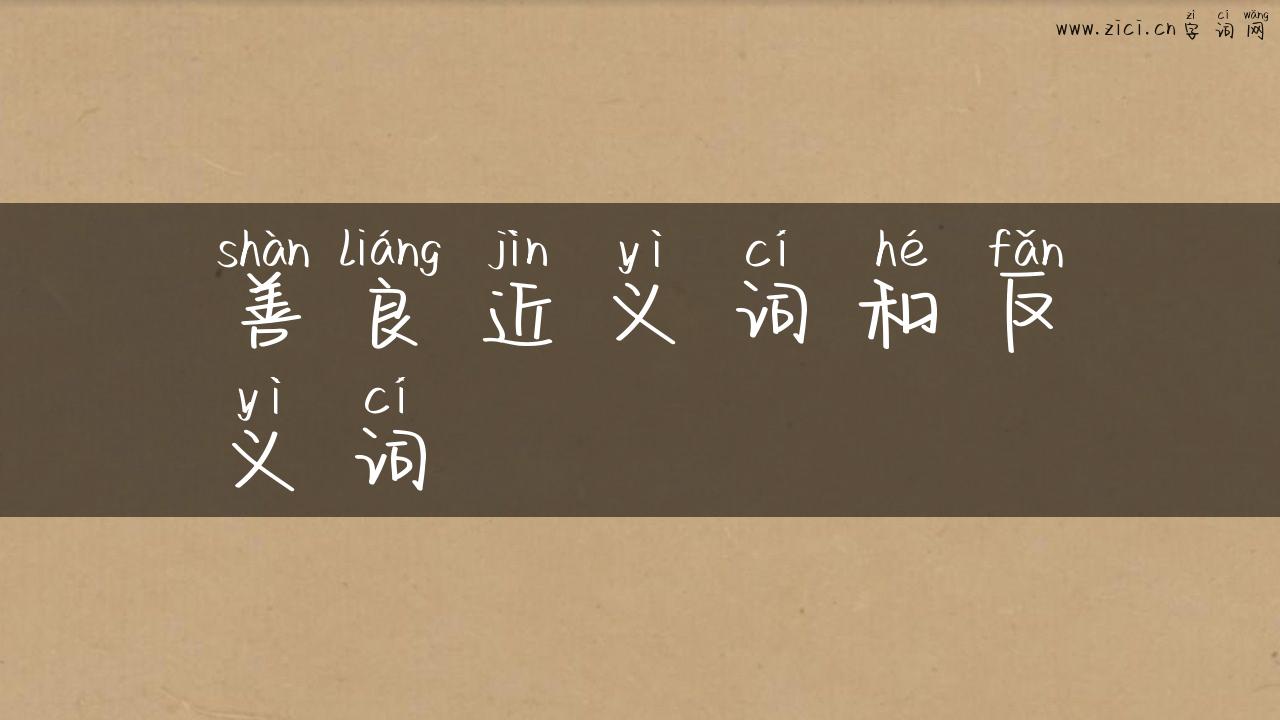 zì cí wǎng
www.zici.cn 字 词 网
shàn liáng jìn yì cí hé fǎn
善 良 近 义 词 和 反
yì cí
义 词